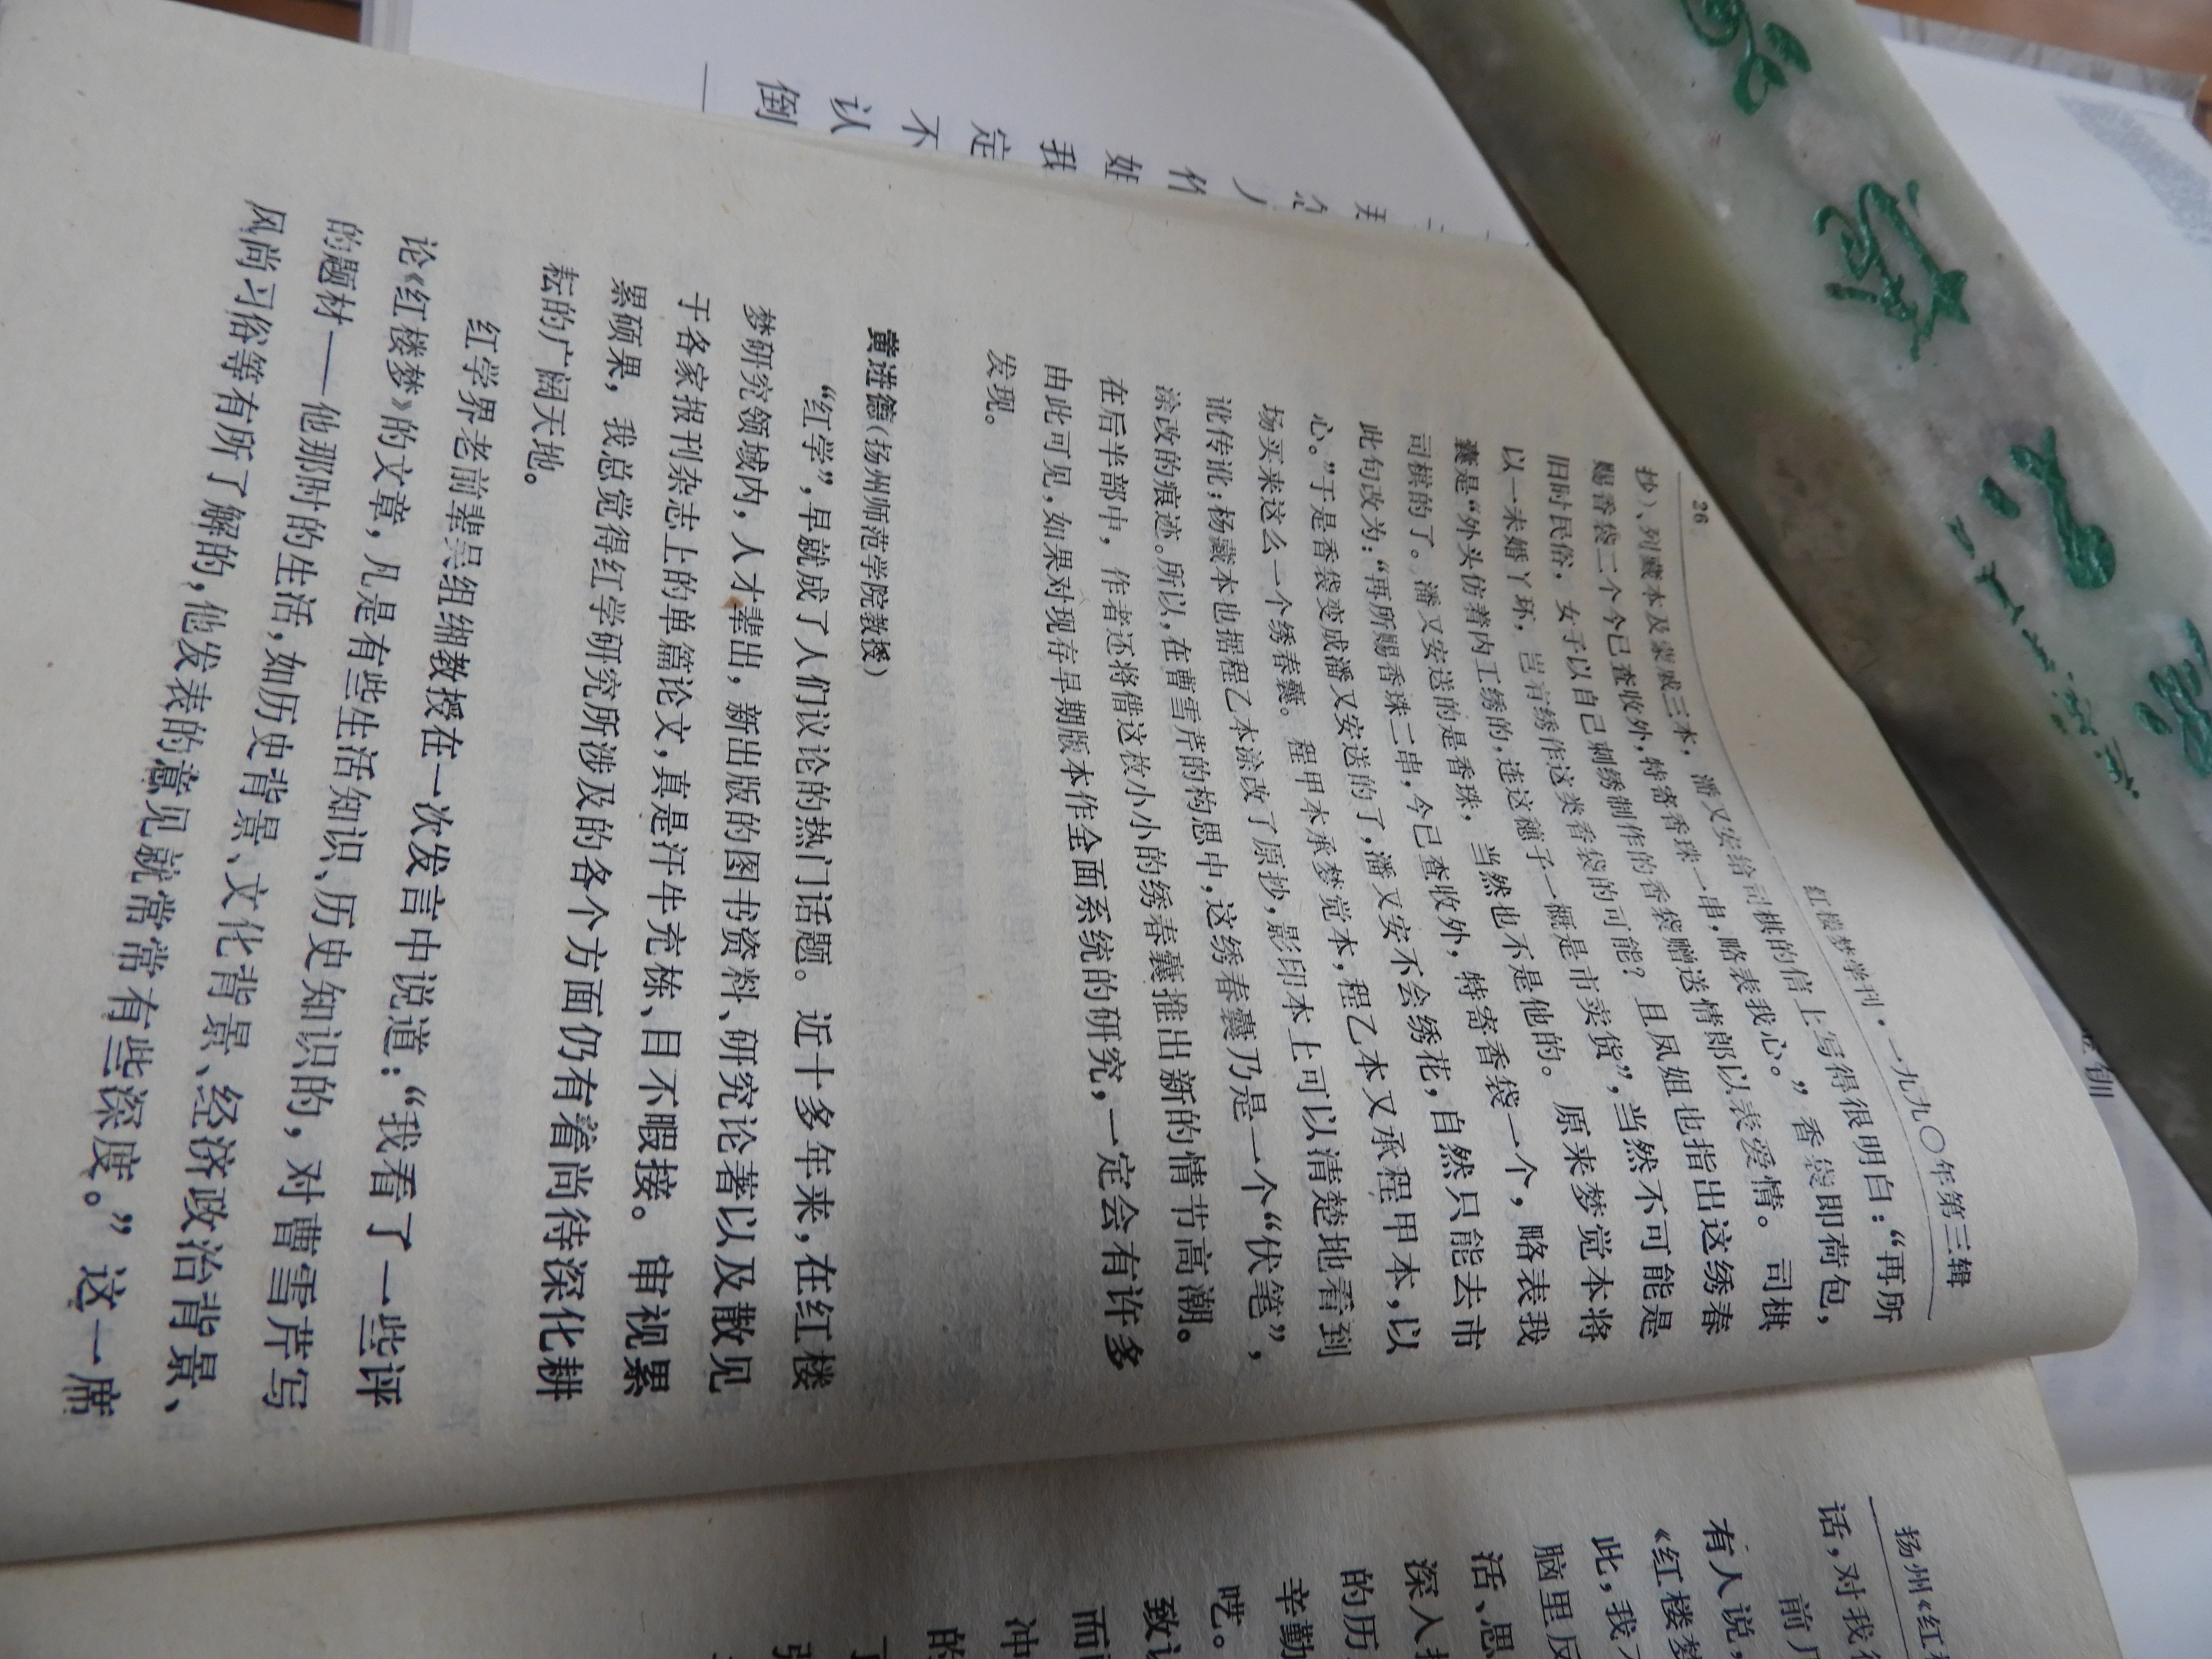 26
红楼梦学刊·一九九〇年第三辑
抄)、列藏本及蒙戚三本,潘又安给司棋的信上写得很明白:“再所
赐香袋二个今已查收外,特寄香珠一串,略表我心。”香袋即荷包,
旧时民俗,女子以自己刺绣制作的香袋赠送情郎以表爱情。司棋
以一未婚丫环,岂有绣作这类香袋的可能?且凤姐也指出这绣春
囊是“外头仿着内工绣的,连这穗子一概是市卖货”,当然不可能是
司棋的了。潘又安送的是香珠,当然也不是他的。原来梦觉本将
此句改为:“再所赐香珠二串,今已查收外,特寄香袋一个,略表我
心。”于是香袋变成潘又安送的了,潘又安不会绣花,自然只能去市
场买来这么一个绣春囊。程甲本承梦觉本,程乙本又承程甲本,以
讹传讹;杨藏本也据程乙本涂改了原抄,影印本上可以清楚地看到
涂改的痕迹。所以,在曹雪芹的构思中,这绣春囊乃是一个“伏笔”,
在后半部中,作者还将借这枚小小的绣春囊推出新的情节高潮。
由此可见,如果对现存早期版本作全面系统的研究,一定会有许多
发现。
黄进德(扬州师范学院教授)
“红学”,早就成了人们议论的热门话题。近十多年来,在红楼
梦研究领域内,人才辈出,新出版的图书资料、研究论著以及散见
于各家报刊杂志上的单篇论文,真是汗牛充栋、目不暇接。审视累
累硕果,我总觉得红学研究所涉及的各个方面仍有着尚待深化耕
耘的广阔天地。
红学界老前辈吴组缃教授在一次发言中说道:“我看了一些评
论《红楼梦》的文章,凡是有些生活知识、历史知识的,对曹雪芹写
的题材——他那时的生活,如历史背景、文化背景、经济政治背景、
风尚习俗等有所了解的,他发表的意见就常常有些深度。”这一席
扬州《红
话,对我
前
有人说,
《红楼梦
此,我
脑里反
活、思
深入
的历
辛勤
呓。
致
而
冲
的
我
定
不
认
倒